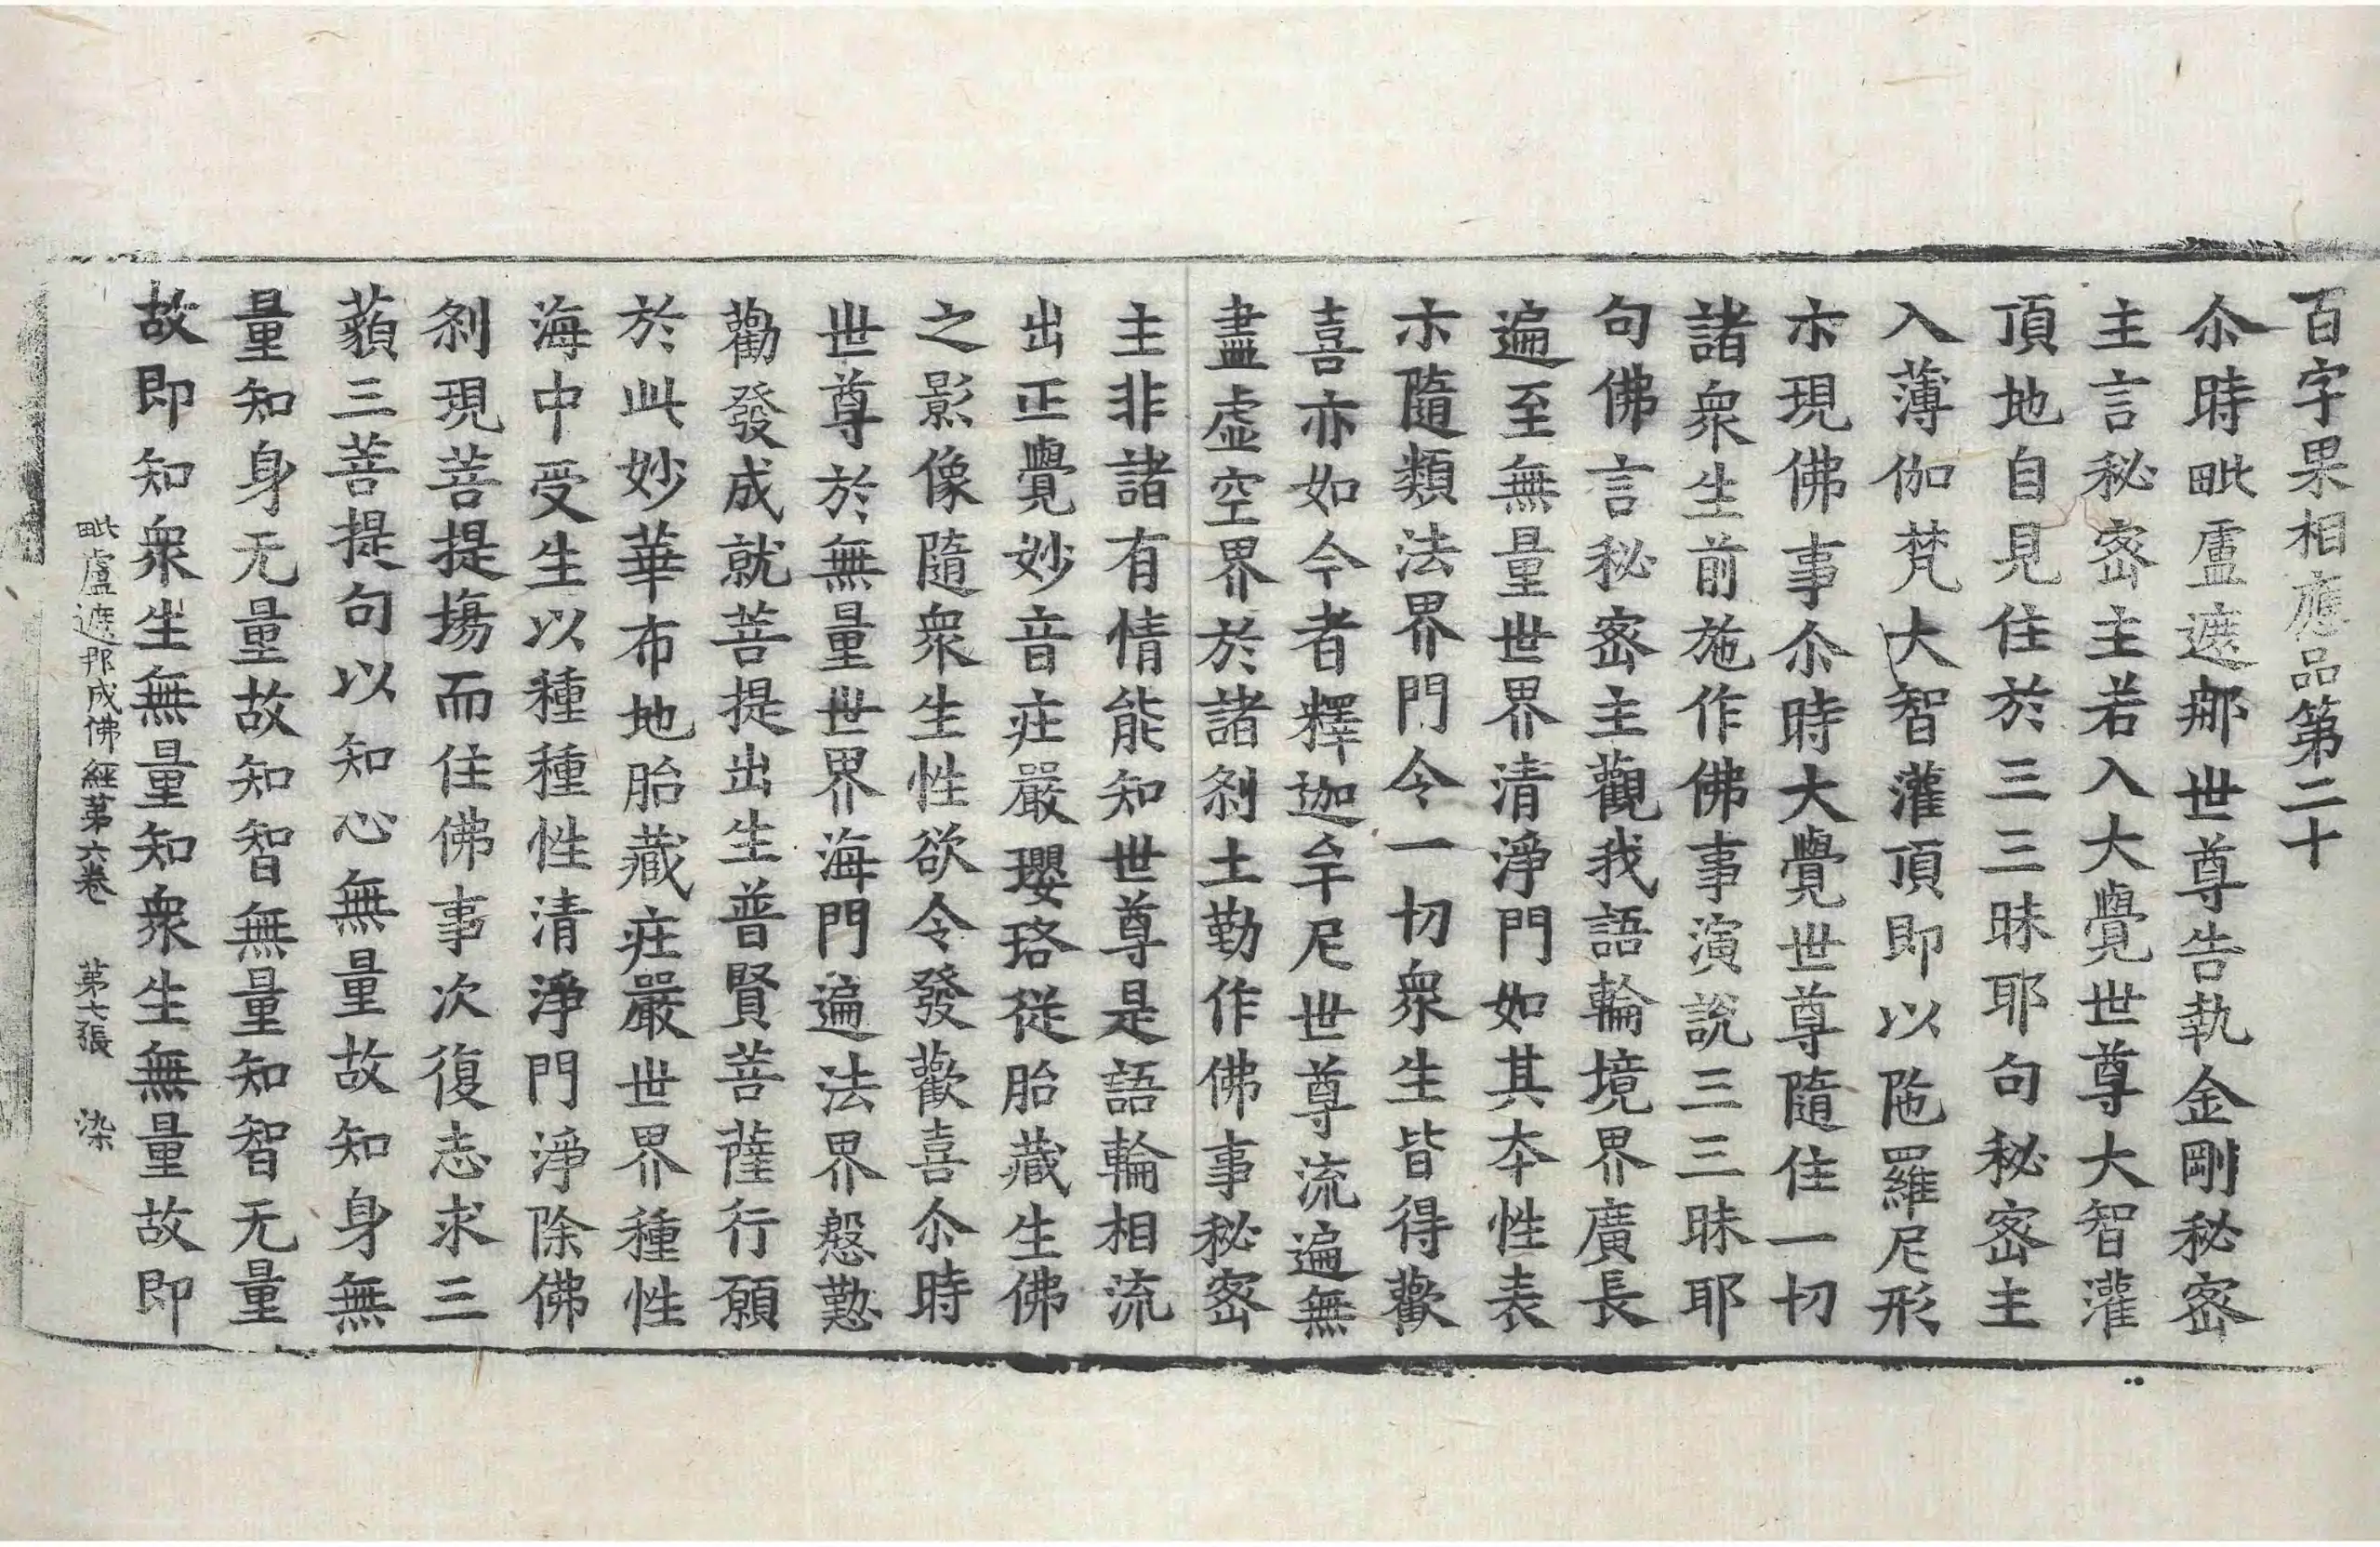 百字果相應品第二十
尒時毗盧遮那世尊告執金剛秘密
主言秘密主若入大覺世尊大智灌
頂地自見住於三三昧耶句秘密主
入薄伽梵大智灌頂即以陁羅尼形
示現佛事尒時大覺世尊隨住一切
諸衆生前施作佛事演說三三昧耶
句佛言秘密主觀我語輪境界廣長
遍至無量世界清淨門如其夲性表
示隨類法界門令一切衆生皆得歡
喜亦如今者釋迦牟尼世尊流遍無
盡虛空界於諸剎土勤作佛事秘密
主非諸有情能知世尊是語輪相流
出正覺妙音莊嚴瓔珞從胎藏生佛
之影像隨衆生性欲令發歡喜尒時
世尊於無量世界海門遍法界慇懃
勸發成就菩提出生普賢菩薩行願
於此妙華布地胎藏莊嚴世界種性
海中受生以種種性清淨門淨除佛
剎現菩提場而住佛事次復志求三
藐三菩提句以知心無量故知身無
量知身无量故知智無量知智无量
故即知衆生無量知衆生無量故即
毗盧遮那成佛經第六卷　第七張　染